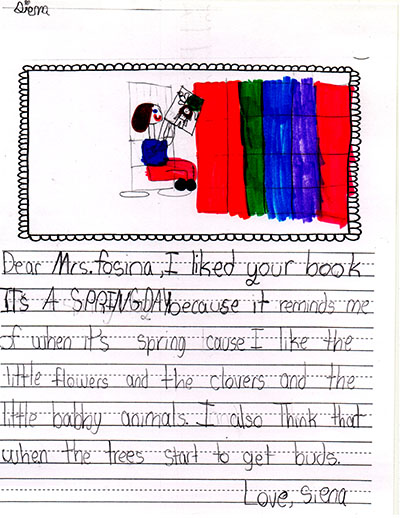 Siena
Dear Mrs. Fosina, I liked your book
IT'S A SPRING DAY because it reminds me
of when it's spring cause I like the
little flowers and the clovers and the
little babby animals. I also Think that
when the trees start to get buds.
Love, Siena